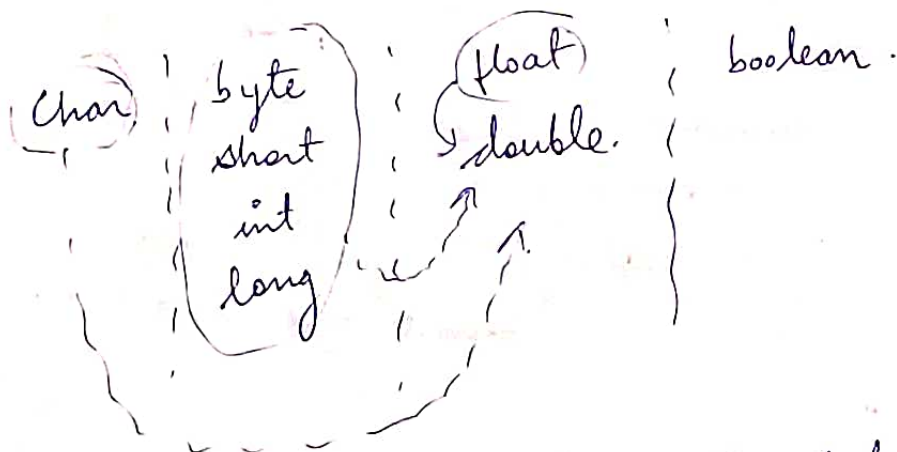 Char
byte
short
int
long
float
double.
boolean.